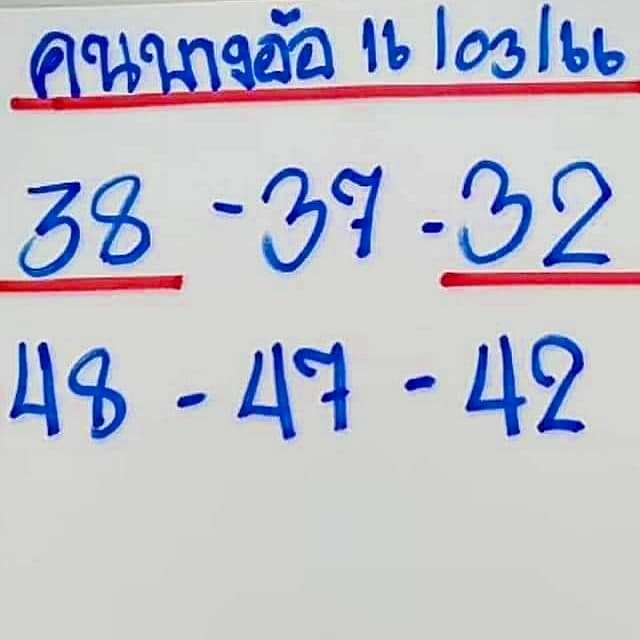 คนบางอ้อ 16/03/66
38 - 37 - 32
48 - 47 - 42